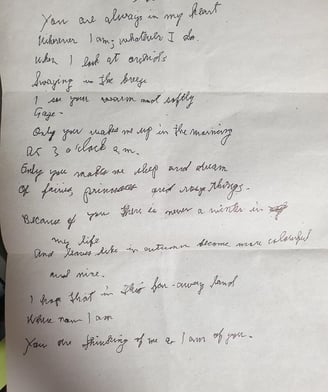 You are always in my heart
Wherever I am; whatever I do.
When I look at orchids
Swaying in the breeze
I see your warm and softly
Gaze-
Only you makes me up in the morning
At 3 o'clock a.m.
Only you makes me sleep and dream
Of fairies, princesses and rosy things.
Because of you there is never a winter in
my life
and leaves like in autumn become more colourful
and nice.
I hop that in this far-away land
Where now I am
You are thinking of me as I am of you.